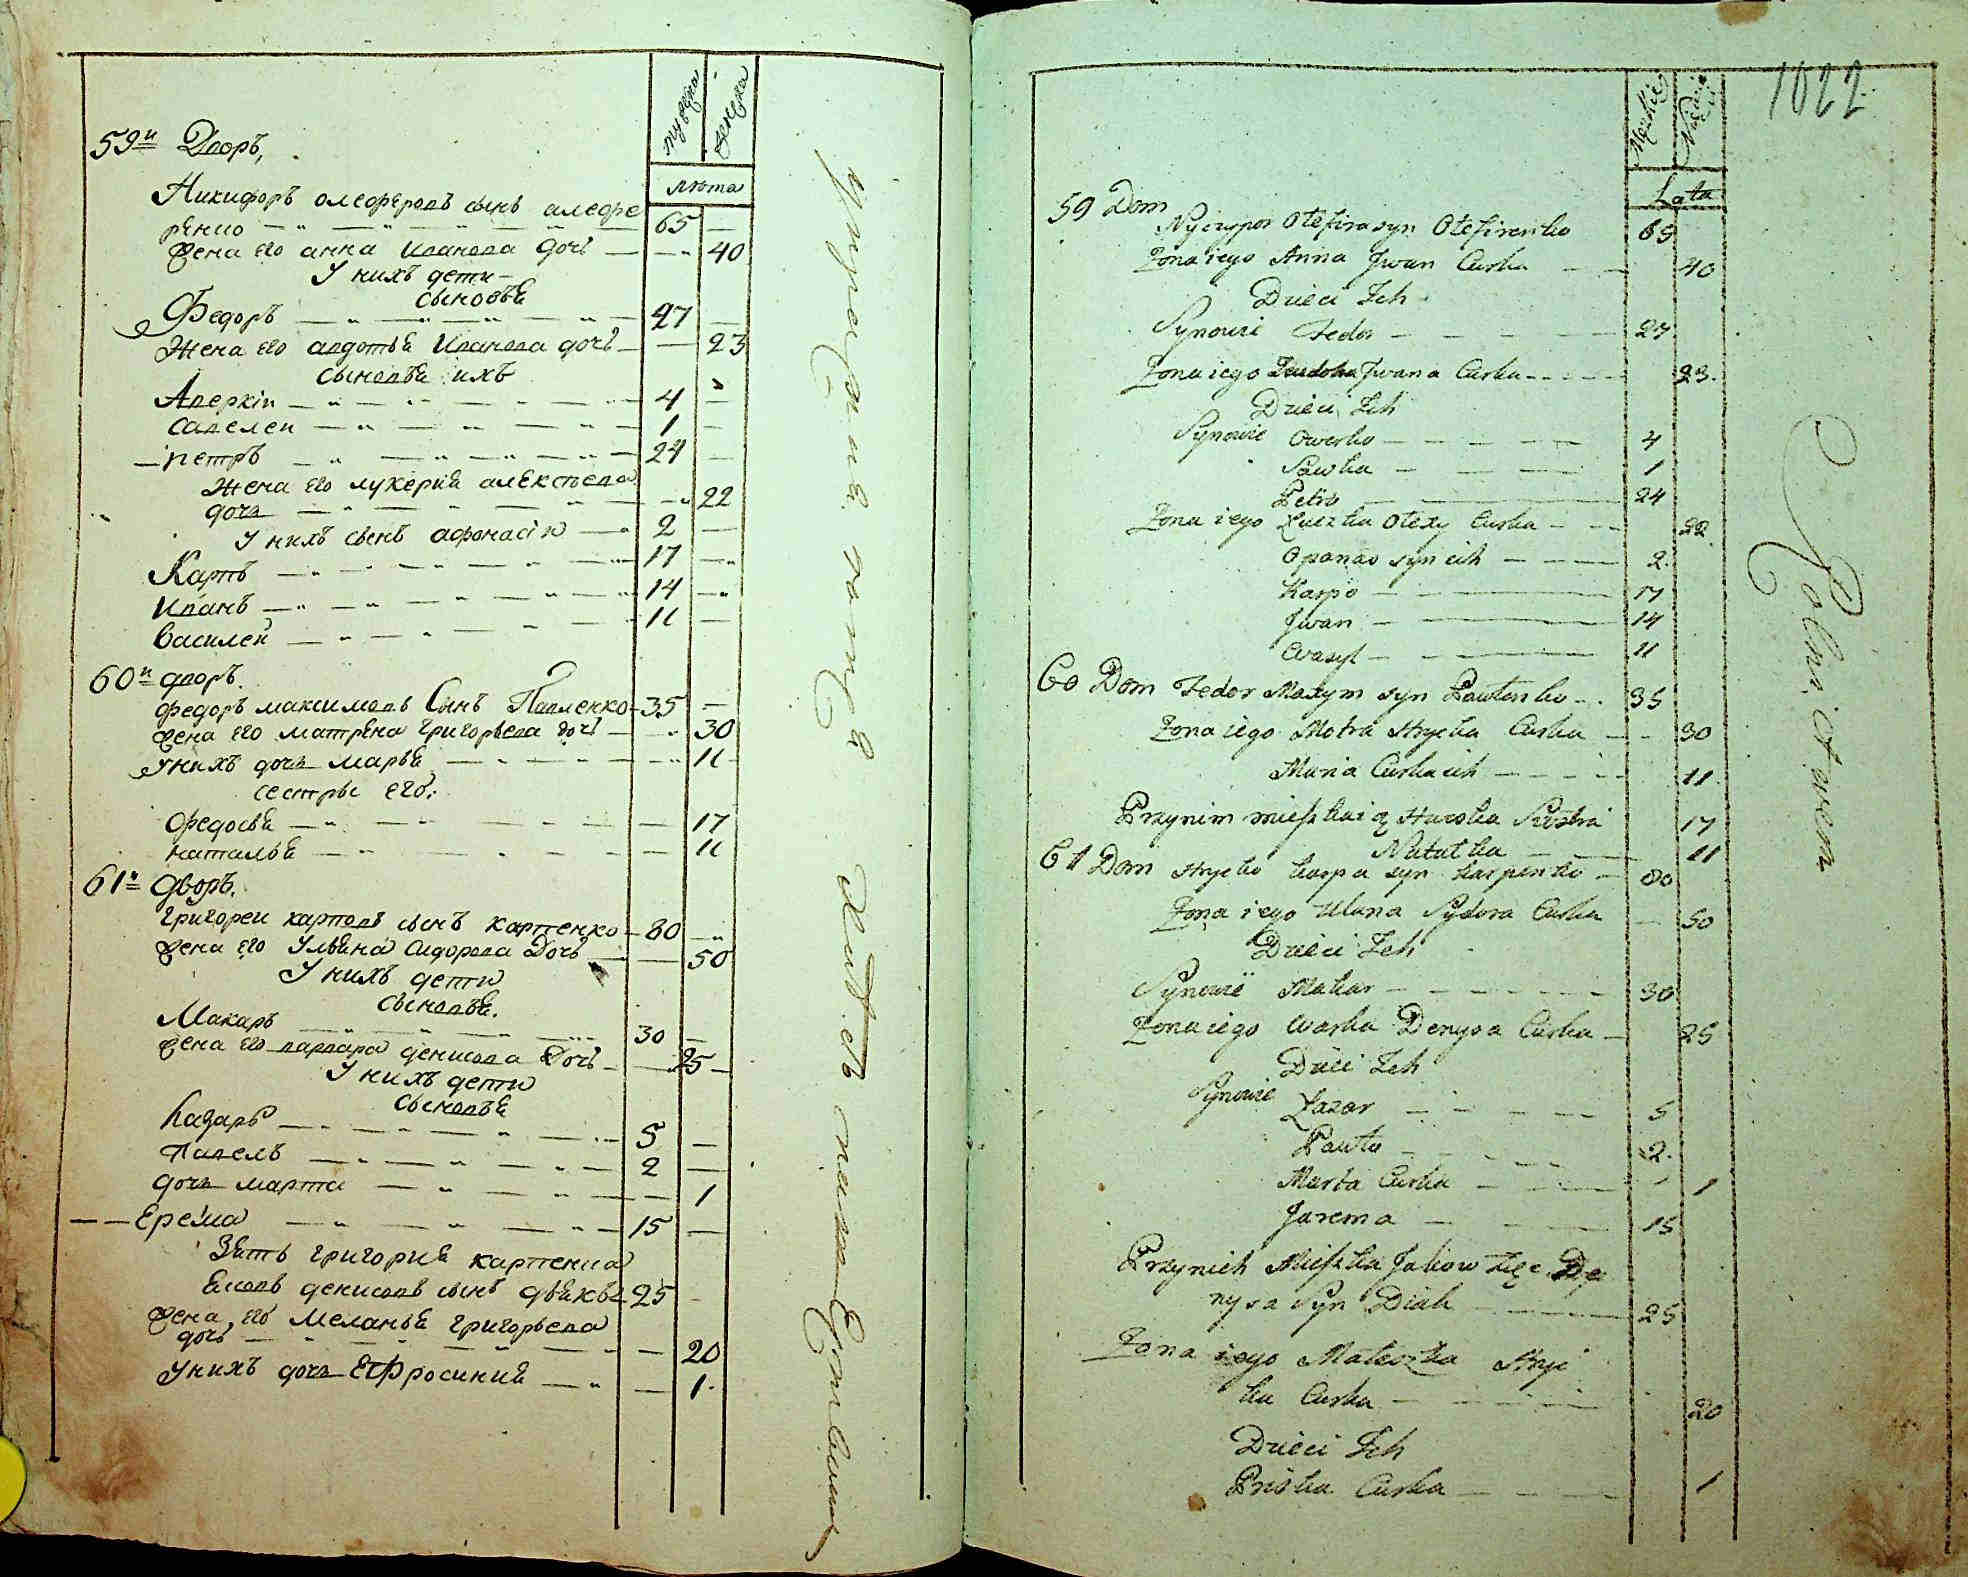 мужеска
женска
лѣта
59й Дворъ,
Никифоръ олеферовъ сынъ олефе
ренко 65
жена его анна Иванова дочь 40
У нихъ дети
сыновья
Федоръ 27
Жена его авдотья Иванова дочь 23
сыновья ихъ
Аверкiи 4
савелеи 1
петръ 24
Жена его лукерия алексѣева
дочь 22
У нихъ сынъ афонасiи 2
Карпъ 17
Иванъ 14
Василей 11
60й дворъ.
Федоръ максимовъ Сынъ Павленко 35
жена его матрена григорьева дочь 30
У нихъ дочь марья 11
сестры его:
Федосья 17
наталья 11
61й дворъ.
григореи карповъ сынъ карпенко 80
жена его Ульяна сидорова Дочь 50
У нихъ дети
сыновья.
Макаръ 30
жена его варвара денисова Дочь 25
У нихъ дети
сыновья
Лазарь 5
Павелъ 2
дочь марта 1
Ерема 15
Зять григория карпенка
денисовъ сынъ дьякъ 25
жена его Меланья григорьева
дочь 20
У нихъ дочь Ефросиния 1
1022
Męzkie
Lata
59 Dom
Nyczypor Olefira syn Olefirenko 65
Zona iego Anna Jwan Curka 40
Dzieci Jch
Synowie Fedor 27
Zona iego Jwana Curka 23.
Dzieci Jch
Synowie Owerko 4
Sawka 1
Petro 24
Zona iego Luczka Olexy Curka 22
Opanas syn ich 2.
Karpo 17
Jwan 14
Wasyl 11
60 Dom Fedor Maxym syn Pawlenko 35
Zona iego Motra Hrycka Curka 30
Maria Curka ich 11
Przynim mieszkaią Siostra 17
Natalka 11
61 Dom Hrycko Karpa syn Karpenko 80
Zona iego Ulana Sydora Curka 50
Dzieci Jch
Synowie Makar 30
Zona iego Warka Denysa Curka 25
Dzieci Jch
Synowie Łazar 5
Pawło 2.
Marta Curka 1
Jarema 15
Przynich Mieszka Jakow zięc De
nysa Syn Diak 25
Zona iego Hryc
ka Curka 20
Dzieci Jch
Priska Curka 1